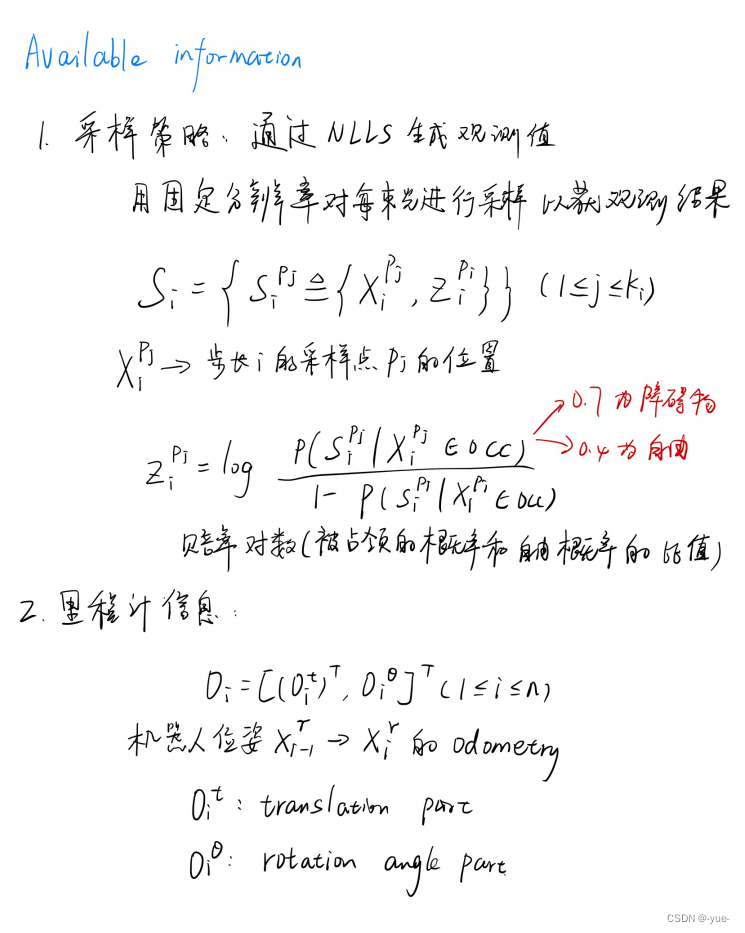 Available information
1. 采样策略：通过NLLS生成观测值
用固定分辨率对每束光进行采样以获观测结果
S_i = { S_i^{P_j} ≜ { X_i^{P_j}, Z_i^{P_j} } } (1≤j≤k_i)
X_i^{P_j} → 步长i的采样点P_j的位置
0.7为障碍物
Z_i^{P_j} = log \frac{P(S_i^{P_j} | X_i^{P_j} ∈ occ)}{1 - P(S_i^{P_j} | X_i^{P_j} ∈ occ)}
0.4为自由
赔率对数(被占领的概率和自由概率的比值)
2. 里程计信息：
O_i = [(O_i^t)^T, O_i^θ]^T (1≤i≤n)
机器人位姿 X_{i-1}^r → X_i^r 的 odometry
O_i^t: translation part
O_i^θ: rotation angle part
CSDN @-yue-